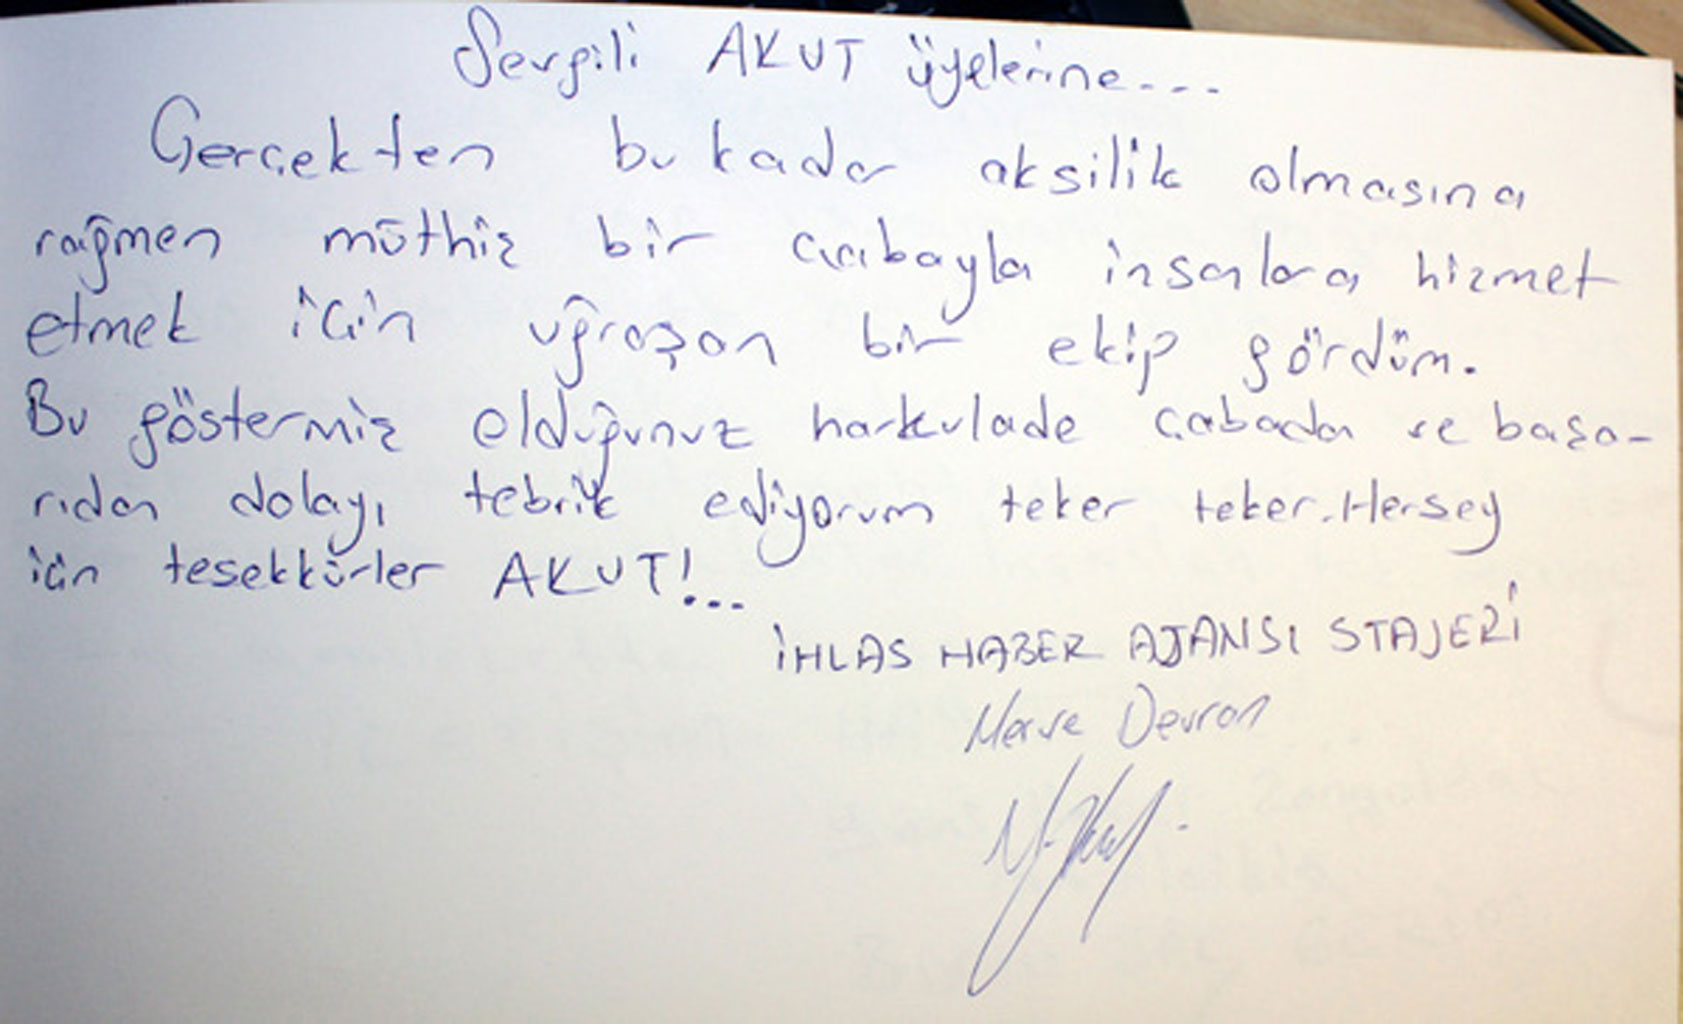 Sevgili AKUT üyelerine...
Gerçekten bu kadar aksilik olmasına
rağmen müthiş bir çabayla insanlara hizmet
etmek için uğraşan bir ekip gördüm.
Bu göstermiş olduğunuz harkulade çabadan ve başa-
rıdan dolayı tebrik ediyorum teker teker. Herşey
için teşekkürler AKUT!...
İHLAS HABER AJANSI STAJERİ
Merve Devran